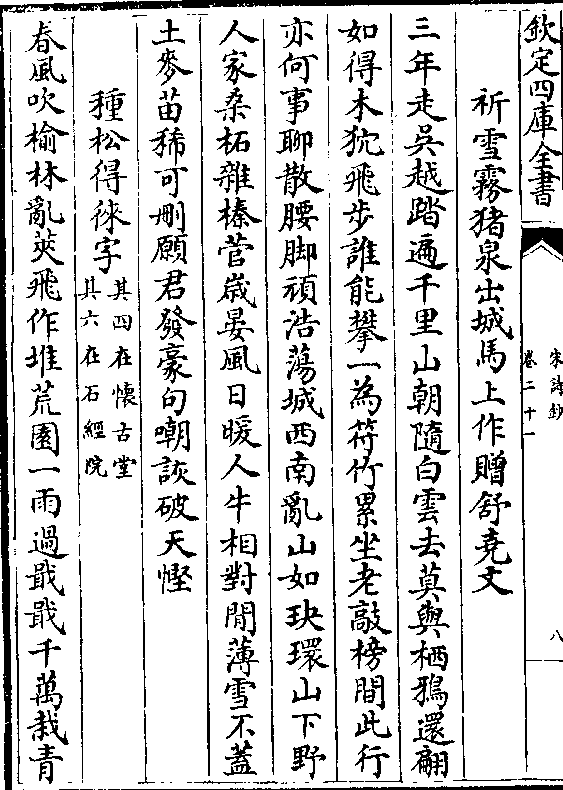 欽定四庫全書
宋詩鈔
卷二十一
八
祈雪霧猪泉出城馬上作贈舒堯文
三年走吳越踏遍千里山朝隨白雲去莫與栖鴉還翩
如得木狖飛步誰能攀一為符竹累坐老敲榜間此行
亦何事聊散腰脚頑浩蕩城西南亂山如玦環山下野
人家桑柘雜榛菅歲晏風日暖人牛相對閒薄雪不蓋
土麥苗稀可刪願君發豪句嘲詼破天慳
種松得徠字
其四在懷古堂
其六在石經院
春風吹榆林亂莢飛作堆荒園一雨過戢戢千萬栽青